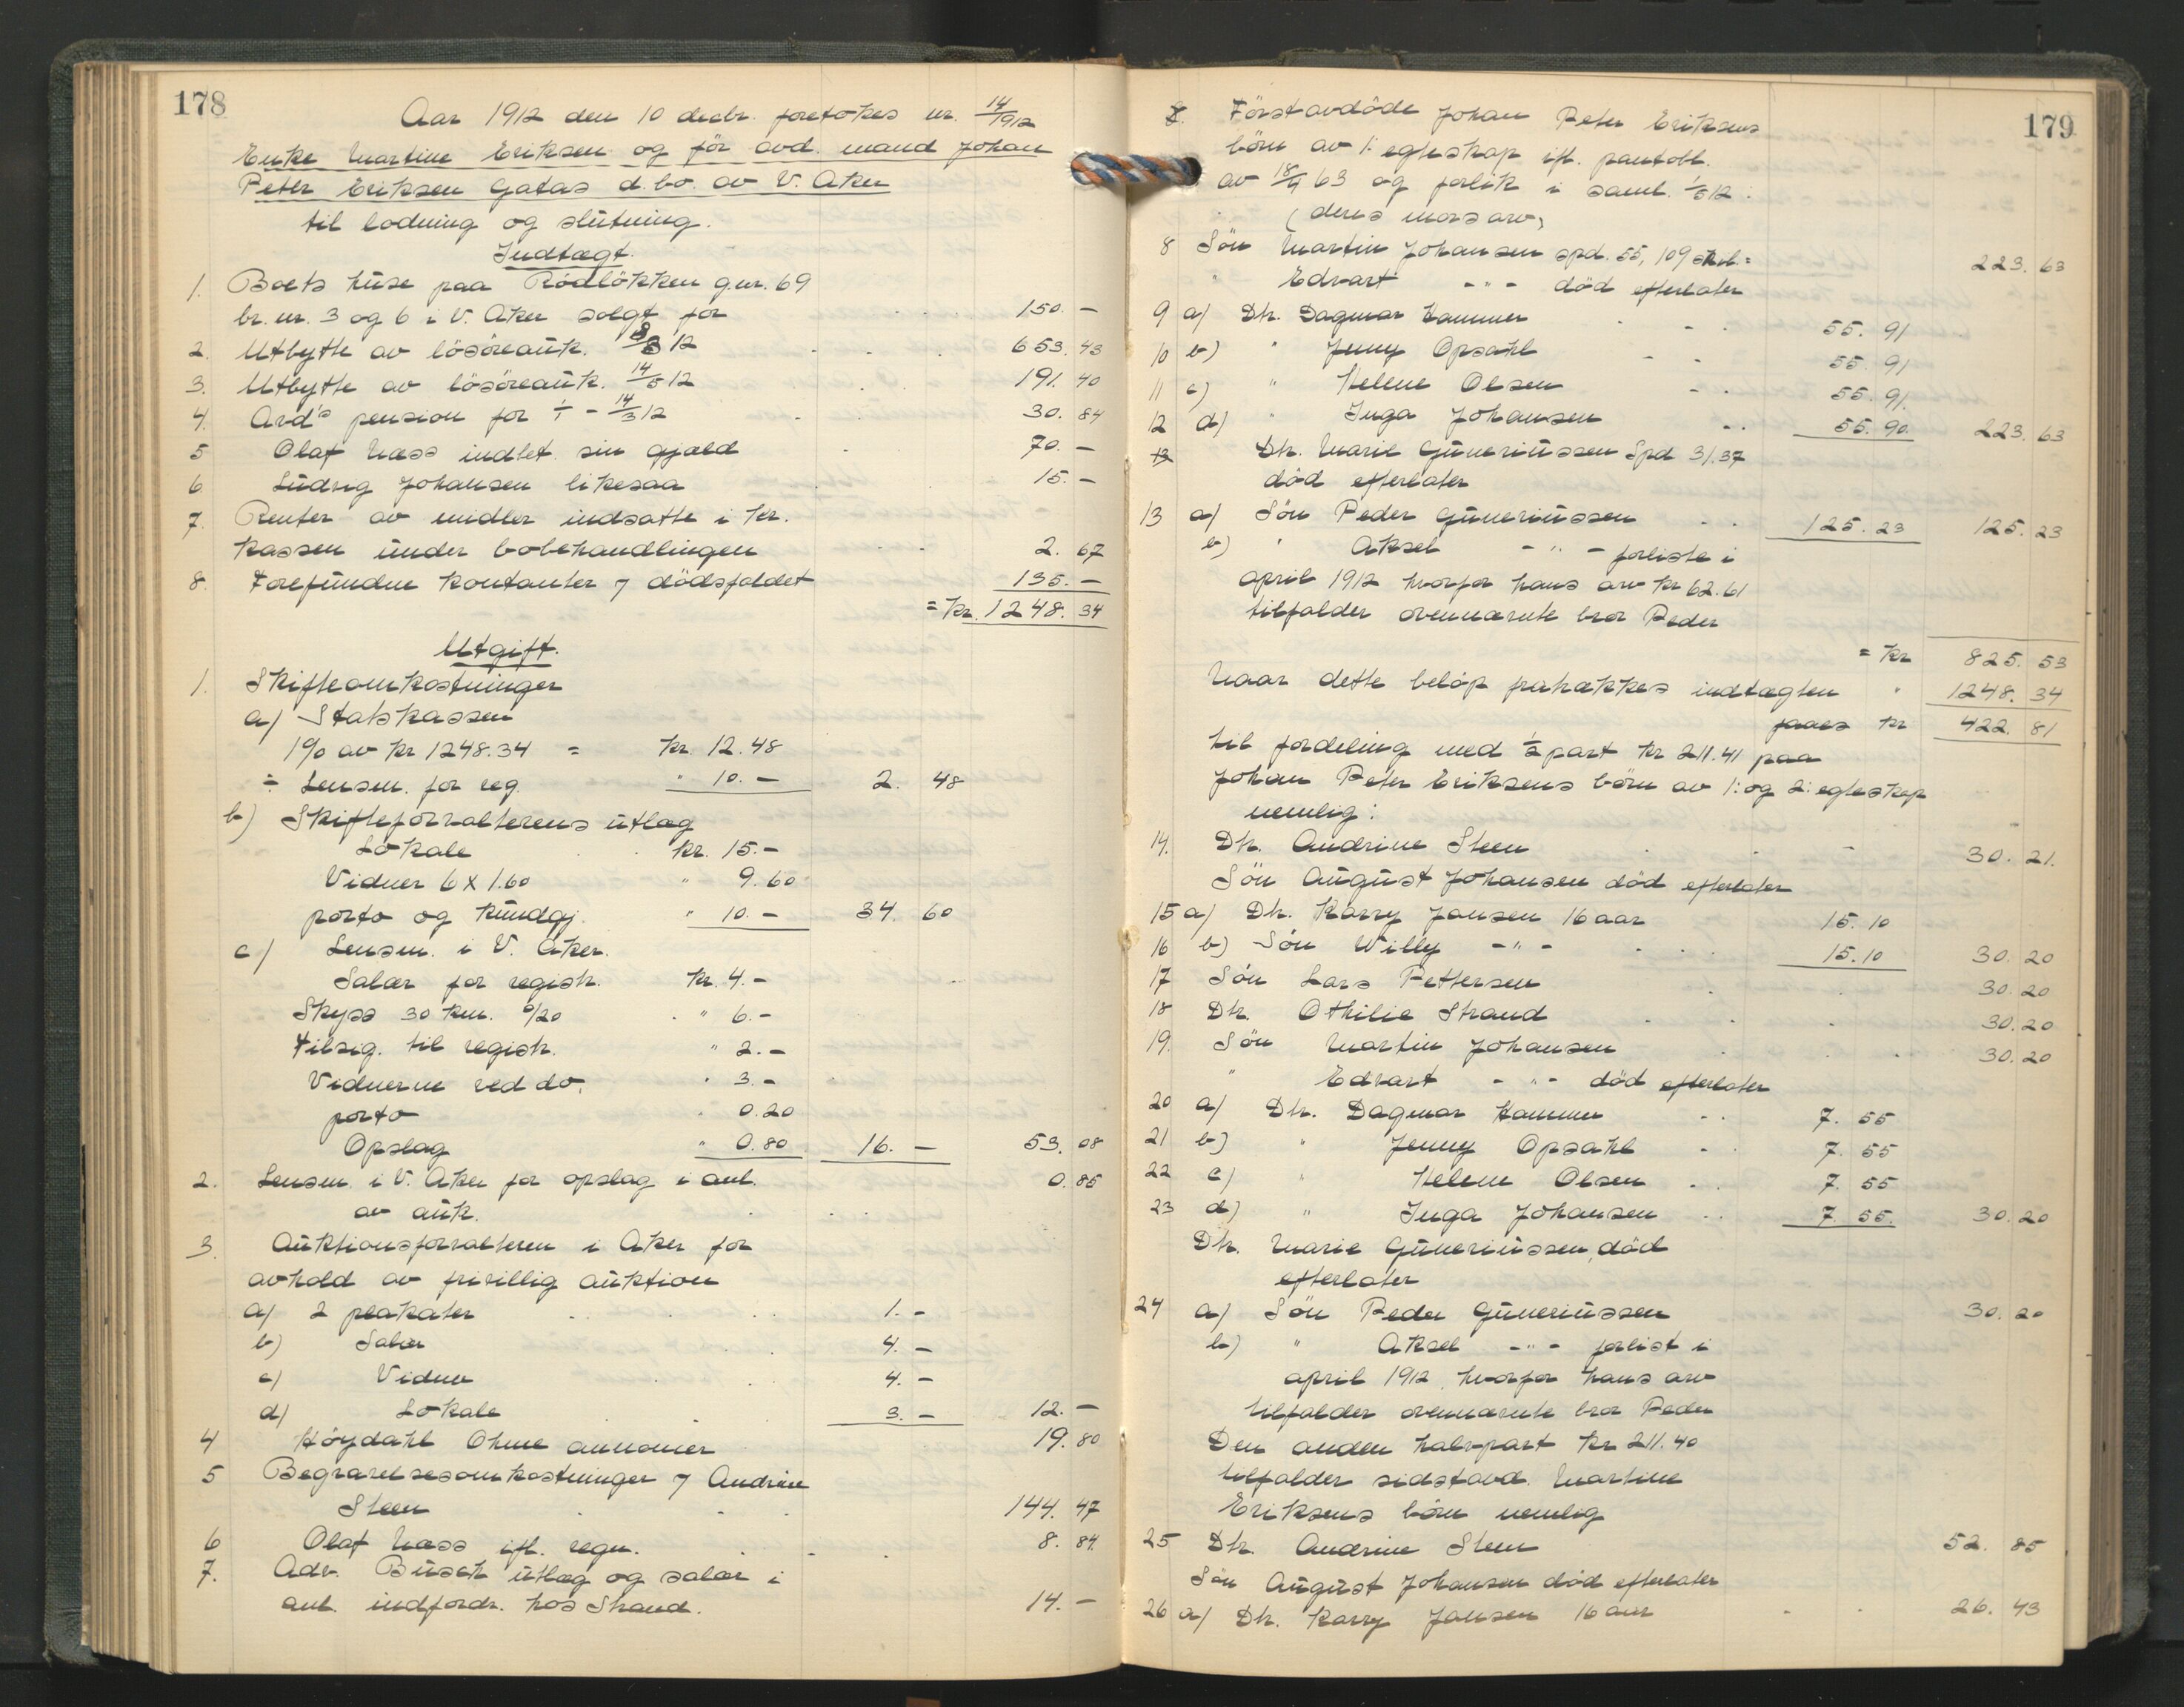 178
Aar 1912 den 10 decbr. foretokes nr. 14/1912
Enke Martine Eriksen og før avd. mand Johan
Peter Eriksen Gatas d. bo. av V. Aker
til lodning og slutning.
Indtægt.
1. Boets huse paa Rødløkken g.nr. 69
br. nr. 3 og 6 i V. Aker solgt for 150. –
2. Utbytte av løsøreauk. 12 653. 43
3. Utbytte av løsøreauk. 14/5 12 191. 40
4. Avd's pension for 14/3 12 30. 84
5 Olaf Næss indbet. sin gjæld 70. –
6 Ludvig Johansen likesaa 15. –
7. Renter av midler indsatte i kr.
kassen under bobehandlingen 2. 67
8. Forefundne kontanter v dödsfaldet 135. –
= kr. 1248. 34
Utgift.
1. Skifteomkostninger
a) Statskassen
1% av kr 1248.34 = kr. 12.48
÷ Lensm. for reg. " 10. – 2. 48
b) Skifteforvalterens utlæg
Lokale kr. 15.–
Vidner 6 x 1.60 " 9.60
porto og kundgj. " 10. – 34. 60
c) Lensm. i V. Aker.
Salær for registr. kr. 4.–
Skyss 30 km. à/20 " 6.–
Tilsig. til registr. " 2.–
Vidnerne ved do. " 3.–
porto " 0.20
Opslag " 0.80 16. – 53. 08
2. Lensm. i V. Aker for opslag i anl.
av auk. 0. 85
3. Auktionsforvalteren i Aker for
avhold av frivillig auktion
a) 2 plakater 1. –
b) Salær 4. –
c) Vidner 4. –
d) Lokale 3. – 12. –
4 Høydahl Ohme annoncer 19. 80
5 Begravelsesomkostninger v Andrine
Steen 144. 47
6 Olaf Næss ifl. regn. 8. 84
7. Adv. Busch utlæg og salær i
anl. indfordr. hos Strand. 14. –
179
8. Förstavdöde Johan Peter Eriksens
börn av 1: egteskap ifl. pantobl.
av 18/9 63 og forlik i saml. 1/5 12:
(deres mors arv)
8 Sön Martin Johansen spd. 55, 109 skil. = 223. 63
" Edvart – " – död efterlater
9 a) Dtr. Dagmar Hammer 55. 91
10 b) " Jenny Opsahl 55. 91
11 c) " Helene Olsen 55. 91
12 d) " Inga Johansen 55. 90 223. 63
13 Dtr. Marie Guneriussen Spd 31.37
död efterlater
13 a) Sön Peder Guneriussen 125. 23 125. 23
b) " Aksel – " – forliste i
april 1912 hvorfor hans arv kr 62.61
tilfalder ovennævnte bror Peder
= kr 825. 53
Naar dette beløp fratrækkes indtægten " 1248. 34
faaes kr 422. 81
til fordeling med ½ part kr 211.41 paa
Johan Peter Eriksens börn av 1: og 2: egteskap
nemlig:
14. Dtr. Andrine Steen 30. 21.
Sön August Johansen död efterlater
15 a) Dtr. Karry Jansen 16 aar 15. 10
16 b) Sön Willy – " – 15. 10 30. 20
17 Sön Lars Pettersen 30. 20
18 Dtr. Othilie Strand 30. 20
19. Sön Martin Johansen 30. 20
" Edvart – " – död efterlater
20 a) Dtr. Dagmar Hammer 7. 55
21 b) " Jenny Opsahl 7. 55
22 c) " Helene Olsen 7. 55
23 d) " Inga Johansen 7. 55. 30. 20
Dtr. Marie Guneriussen, död
efterlater
24 a) Sön Peder Guneriussen 30. 20
b) " Aksel – " – forlist i
april 1912, hvorfor hans arv
tilfalder ovennævnte bror Peder
Den anden halvpart kr 211.40
tilfalder sidstavd. Martine
Eriksens börn nemlig
25 Dtr. Andrine Steen 52. 85
Sön August Johansen död efterlater
26 a) Dtr. Karry Jansen 16 aar 26. 43